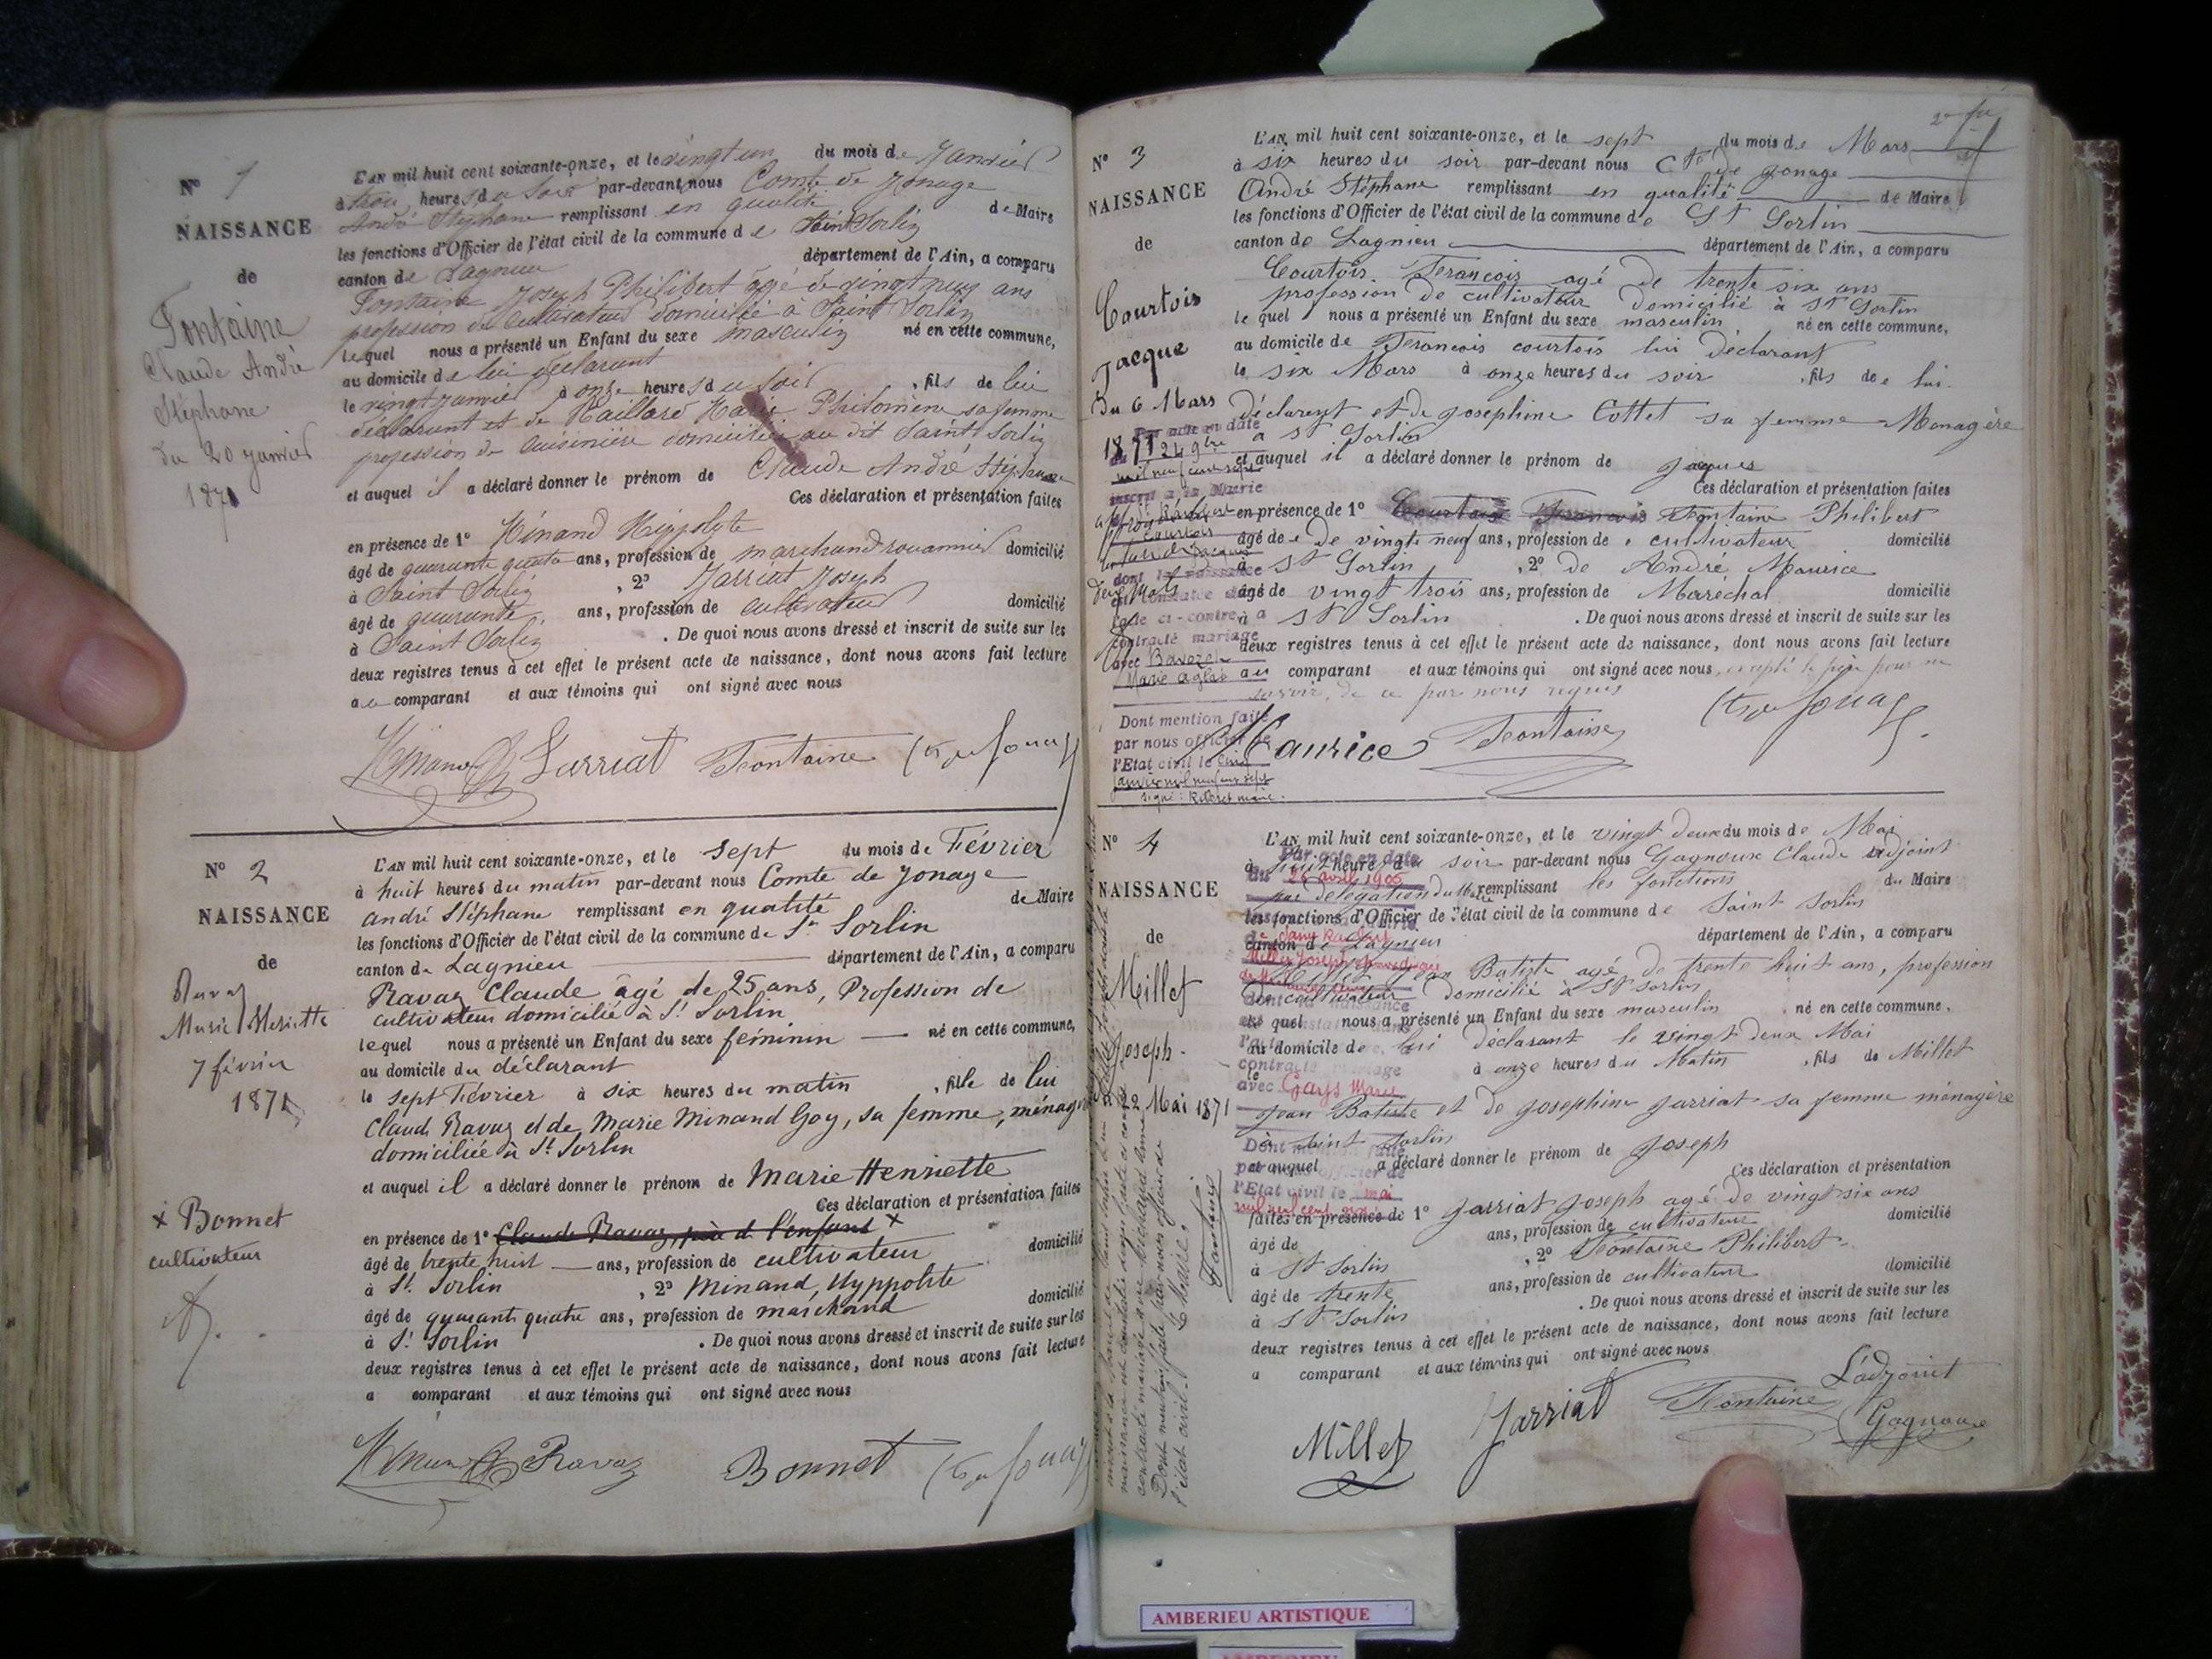 N° 1
NAISSANCE
de
Fontaine
Claude André
Stéphane
du 20 Janvier
1871
L'AN mil huit cent soixante-onze, et le vingt un du mois de Janvier
à trois heures du Soir par-devant nous Comte de Jonage
André Stéphane remplissant en qualité de Maire
les fonctions d'Officier de l'état civil de la commune de Saint Sorlin
canton de Lagnieu département de l'Ain, a comparu
Fontaine Joseph Philibert âgé de vingt neuf ans
profession de cultivateur domicilié à Saint Sorlin
lequel nous a présenté un Enfant du sexe masculin né en cette commune,
au domicile de lui déclarant
le vingt Janvier à onze heures du soir , fils de lui
déclarant et de Maillard Marie Philomène sa femme
profession de cuisinière domiciliée au dit Saint Sorlin
et auquel il a déclaré donner le prénom de Claude André Stéphane
Ces déclaration et présentation faites
en présence de 1° Minand Hippolyte
âgé de quarante quatre ans, profession de marchand domicilié
à Saint Sorlin , 2° Jarriat Joseph
âgé de quarante ans, profession de cultivateur domicilié
à Saint Sorlin . De quoi nous avons dressé et inscrit de suite sur les
deux registres tenus à cet effet le présent acte de naissance, dont nous avons fait lecture
au comparant et aux témoins qui ont signé avec nous
Minand Jarriat Fontaine Cte de Jonage
N° 2
NAISSANCE
de
Ravaz
Marie Henriette
7 février
1871
L'AN mil huit cent soixante-onze, et le sept du mois de Février
à huit heures du matin par-devant nous Comte de Jonage
André Stéphane remplissant en qualité de Maire
les fonctions d'Officier de l'état civil de la commune de St Sorlin
canton de Lagnieu département de l'Ain, a comparu
Ravaz Claude âgé de 25 ans, Profession de
cultivateur domicilié à St Sorlin
lequel nous a présenté un Enfant du sexe féminin né en cette commune,
au domicile du déclarant
le sept Février à six heures du matin , fille de lui
Claude Ravaz et de Marie Minand Goy, sa femme, ménagère
domiciliée à St Sorlin
et auquel il a déclaré donner le prénom de Marie Henriette
Ces déclaration et présentation faites
x Bonnet
cultivateur
en présence de 1° Claude Ravaz, père de l'enfant x
âgé de trente huit ans, profession de cultivateur domicilié
à St Sorlin , 2° Minand, Hyppolite
âgé de quarante quatre ans, profession de marchand domicilié
à St Sorlin . De quoi nous avons dressé et inscrit de suite sur les
deux registres tenus à cet effet le présent acte de naissance, dont nous avons fait lecture
a comparant et aux témoins qui ont signé avec nous
Minand Ravaz Bonnet Cte de Jonage
N° 3
NAISSANCE
de
Courtois
Jacque
Du 6 Mars
1871
L'AN mil huit cent soixante-onze, et le sept du mois de Mars
à six heures du soir par-devant nous Cte de Jonage
André Stéphane remplissant en qualité de Maire
les fonctions d'Officier de l'état civil de la commune de St Sorlin
canton de Lagnieu département de l'Ain, a comparu
Courtois François agé de trente six ans
profession de cultivateur domicilié à St Sorlin
le quel nous a présenté un Enfant du sexe masculin né en cette commune,
au domicile de François courtois lui déclarant
le six Mars à onze heures du soir , fils de lui
déclarent et de Josephine Cottet sa femme Menagère
a St Sorlin
et auquel il a déclaré donner le prénom de Jaques
Ces déclaration et présentation faites
en présence de 1° Courtois François Fontaine Philibert
âgé de vingt neuf ans, profession de cultivateur domicilié
à St Sorlin , 2° de André Maurice
âgé de vingt trois ans, profession de Maréchal domicilié
à St Sorlin . De quoi nous avons dressé et inscrit de suite sur les
deux registres tenus à cet effet le présent acte de naissance, dont nous avons fait lecture
au comparant et aux témoins qui ont signé avec nous, excepté le père pour ne
savoir, de ce par nous requis
Par acte en date
inscrit à la Mairie
dont la naissance
est constatée dans
l'acte ci-contre, a
contracté mariage
avec
Dont mention faite
par nous officier de
l'Etat civil le cinq
janvier mil neuf cent sept
Maurice Fontaine Cte de Jonage
N° 4
NAISSANCE
de
Millet
Joseph
22 Mai 1871
L'AN mil huit cent soixante-onze, et le vingt deux du mois de Mai
à huit heures du soir par-devant nous Gagnoux Claude adjoint
par délégation du Maire remplissant les fonctions du Maire
les fonctions d'Officier de l'état civil de la commune de Saint Sorlin
canton de Lagnieu département de l'Ain, a comparu
Millet Jean Batiste agé de trente huit ans, profession
de cultivateur domicilié à St Sorlin
le quel nous a présenté un Enfant du sexe masculin né en cette commune,
au domicile de lui déclarant le vingt deux Mai
le à onze heures du Matin , fils de Millet
Jean Batiste et de Josephine Jarriat sa femme ménagère
à Saint Sorlin
et auquel a déclaré donner le prénom de Joseph
Ces déclaration et présentation
faites en présence de 1° Jarriat Joseph agé de vingt six ans
âgé de ans, profession de cultivateur domicilié
à St Sorlin , 2° Fontaine Philibert
âgé de trente ans, profession de cultivateur domicilié
à St Sorlin . De quoi nous avons dressé et inscrit de suite sur les
deux registres tenus à cet effet le présent acte de naissance, dont nous avons fait lecture
a comparant et aux témoins qui ont signé avec nous
Par acte en date
du 26 avril 1905
contracté mariage
avec Garys Marie
Dont mention faite
par nous officier de
l'Etat civil le
L'adjoint
Millet Jarriat Fontaine Gagnoux
AMBERIEU ARTISTIQUE